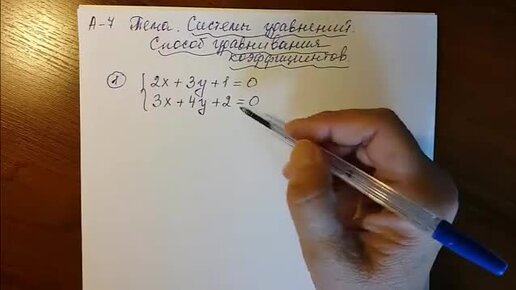 А-7 Тема. Системы уравнений.
Способ уравнивания
коэффициентов
① { 2x + 3y + 1 = 0
3x + 4y + 2 = 0